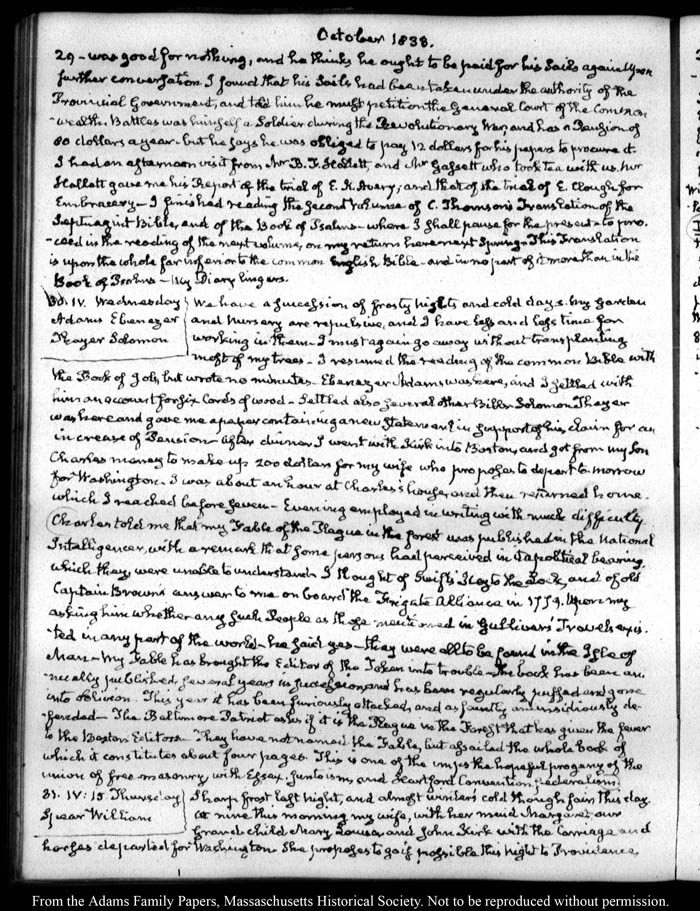 October 1833.
29 - was good for nothing, and he thinks he ought to be paid for his Sails again Upon
further conversation I found that his Sails had been taken under the authority of the
Provincial Government, and told him he must petition the General Court of the Common-
-wealth. Battles was himself a Soldier during the Revolutionary War, and has a Pension of
80 dollars a year - but he says he was obliged to pay 12 dollars for his papers to procure it.
I had an afternoon visit from Mr B. F. Hallett, and Mr Gassett who took tea with us. Mr
Hallett gave me his Report of the trial of E. K. Avery; and that of the trial of E. Clough for
Embracery - I finished reading the second volume of C. Thomson's Translation of the
Septuagint Bible, and of the Book of Psalms - where I shall pause for the present - to pro-
-ceed in the reading of the next volume, on my return here next Spring - This Translation
is upon the whole far inferior to the common English Bible - and in no part of it more than in the
Book of Psalms - My Diary lingers.
30. IV. Wednesday We have a succession of frosty nights and cold days. My garden
Adams Ebenezer and Nursery are repulsive, and I have less and less time for
Thayer Solomon working in them - I must again go away without transplanting
most of my trees - I resumed the reading of the common Bible with
the Book of Job, but wrote no minutes - Ebenezer Adams was here, and I settled with
him an account for six Cords of wood - Settled also several other Bills. Solomon Thayer
was here and gave me a paper containing a new Statement in support of his claim for an
increase of Pension - After dinner I went with Kirk into Boston, and got from my Son
Charles money to make up 200 dollars for my wife who proposes to depart to-morrow
for Washington. I was about an hour at Charles's house, and then returned home.
which I reached before seven - Evening employed in writing with much difficulty
Charles told me that my Fable of the Plague in the forest was published in the National
Intelligencer, with a remark that some persons had perceived in it a political bearing,
which they were unable to understand. I thought of Swift's Key to the Lock, and of old
Captain Brown's answer to me on board the Frigate Alliance in 1779. Upon my
asking him whether any such People as those mentioned in Gulliver's Travels exis-
-ted in any part of the world - he said yes - they were all to be found in the Isle of
Man - My Fable has brought the Editor of the Token into trouble - The book has been an-
-nually published several years in succession, and has been regularly puffed and gone
into oblivion. This year it has been furiously attacked, and as faintly and insidiously de-
-fended - The Baltimore Patriot asks if it is the Plague in the Forest that has given the fever
to the Boston Editors - They have not named the Fable, but assailed the whole book of
which it constitutes about four pages. This is one of the imps the hopeful progeny of the
union of free-masonry, with Essex-Junto ism, and Hartford Convention, federalism.
31. IV: 15. Thursday Sharp frost last night, and almost winter's cold though fair this day.
Spear William At nine this morning my wife, with her maid Margaret, our
Grand child Mary Louisa, and John Kirk with the Carriage and
horses departed for Washington. She proposes to go if possible this night to Providence,
From the Adams Family Papers, Massachusetts Historical Society. Not to be reproduced without permission.